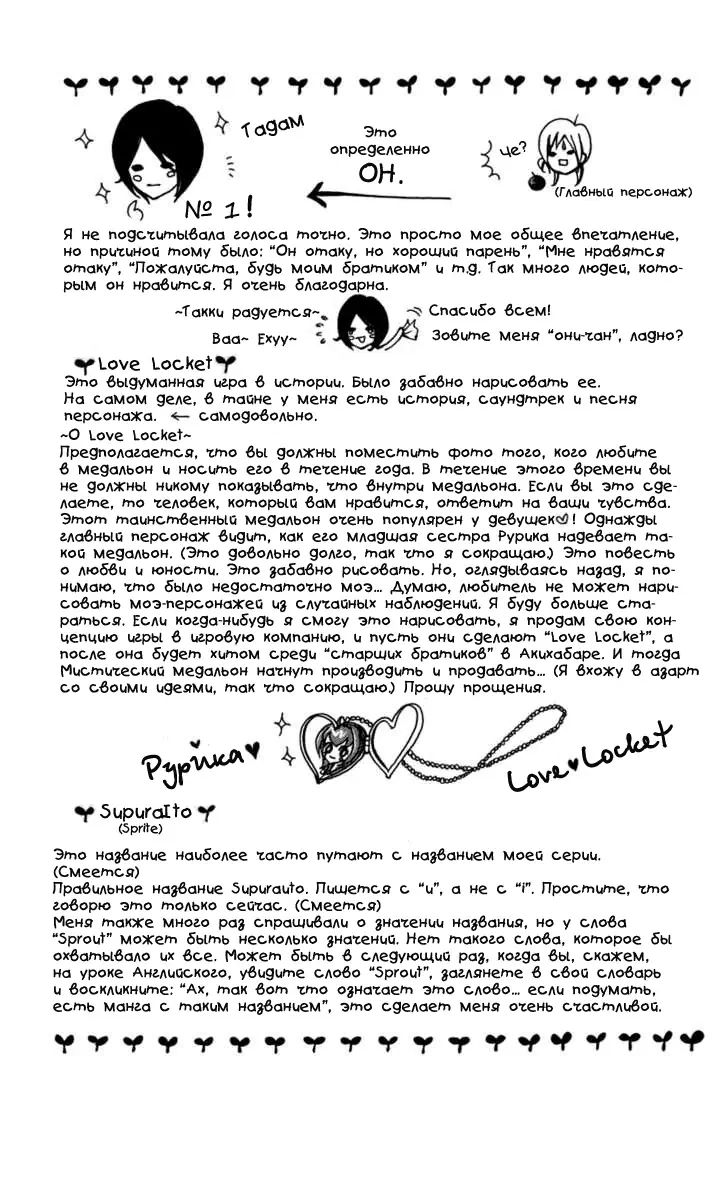 Тадам
Это
определенно
ОН.
че?
(Главный персонаж)
№ 1!
Я не подсчитывала голоса точно. Это просто мое общее впечатление,
но причиной тому было: “Он отаку, но хороший парень”, “Мне нравятся
отаку”, “Пожалуйста, будь моим братиком” и т.д. Так много людей, кото-
рым он нравится. Я очень благодарна.
~Такки радуется~
Ваа~ Ехуу~
Спасибо всем!
Зовите меня “они-чан”, ладно?
Love Locket
Это выдуманная игра в истории. Было забавно нарисовать ее.
На самом деле, в тайне у меня есть история, саундтрек и песня
персонажа. ← самодовольно.
~О Love Locket~
Предполагается, что вы должны поместить фото того, кого любите
в медальон и носить его в течение года. В течение этого времени вы
не должны никому показывать, что внутри медальона. Если вы это сде-
лаете, то человек, который вам нравится, ответит на ваши чувства.
Этот таинственный медальон очень популярен у девушек♥! Однажды
главный персонаж видит, как его младшая сестра Рурика надевает та-
кой медальон. (Это довольно долго, так что я сокращаю.) Это повесть
о любви и юности. Это забавно рисовать. Но, оглядываясь назад, я по-
нимаю, что было недостаточно моэ... Думаю, любитель не может нари-
совать моэ-персонажей из случайных наблюдений. Я буду больше ста-
раться. Если когда-нибудь я смогу это нарисовать, я продам свою кон-
цепцию игры в игровую компанию, и пусть они сделают “Love Locket”, а
после она будет хитом среди “старших братиков” в Акихабаре. И тогда
Мистический медальон начнут производить и продавать... (Я вхожу в азарт
со своими идеями, так что сокращаю.) Прошу прощения.
Рурйка♥
Love♥Locket
SupuraIto
(Sprite)
Это название наиболее часто путают с названием моей серии.
(Смеется)
Правильное название Supurauto. Пишется с “u”, а не с “i”. Простите, что
говорю это только сейчас. (Смеется)
Меня также много раз спрашивали о значении названия, но у слова
“Sprout” может быть несколько значений. Нет такого слова, которое бы
охватывало их все. Может быть в следующий раз, когда вы, скажем,
на уроке Английского, увидите слово “Sprout”, заглянете в свой словарь
и воскликните: “Ах, так вот что означает это слово... если подумать,
есть манга с таким названием”, это сделает меня очень счастливой.